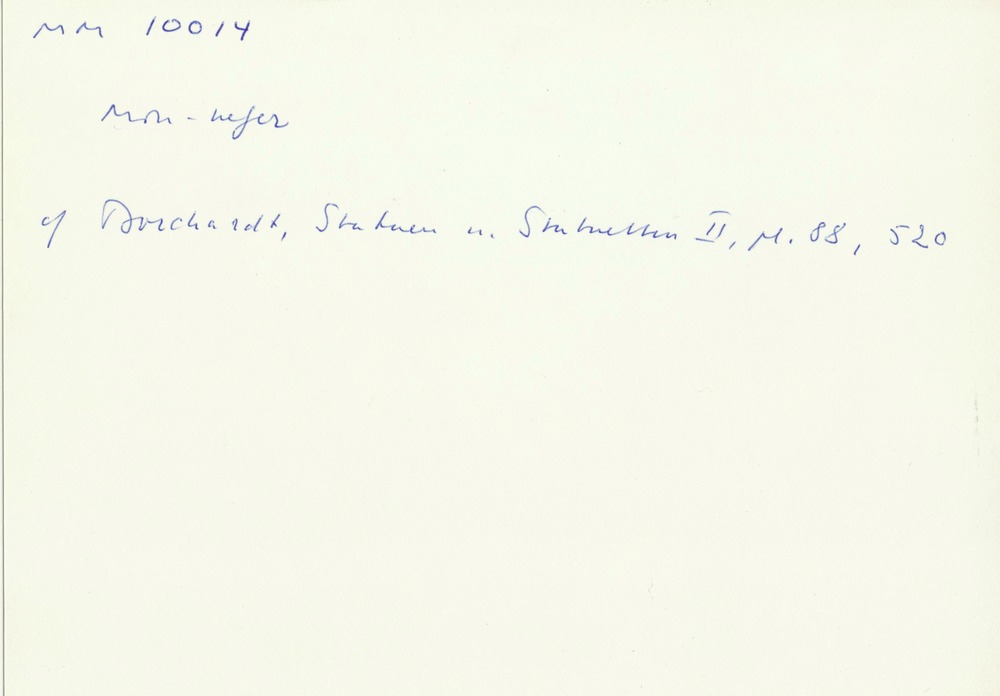 MM 10014
Mon-nefer
cf Borchardt, Statuen u. Statuetten II, pl. 88, 520